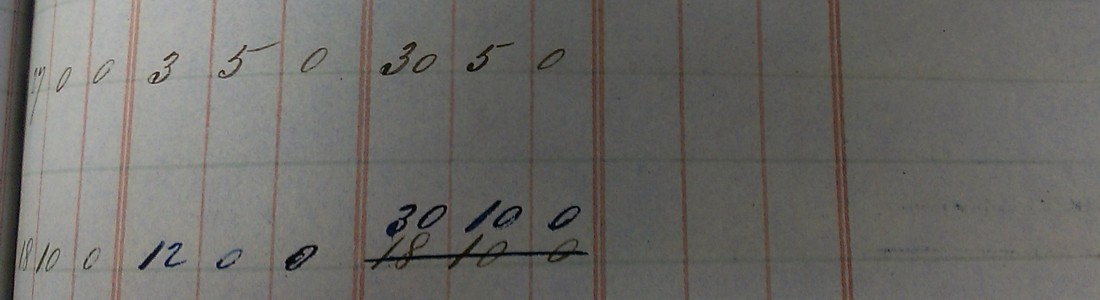 0 0 3 5 0 30 5 0
30 10 0
18 10 0 12 0 0 18 10 0